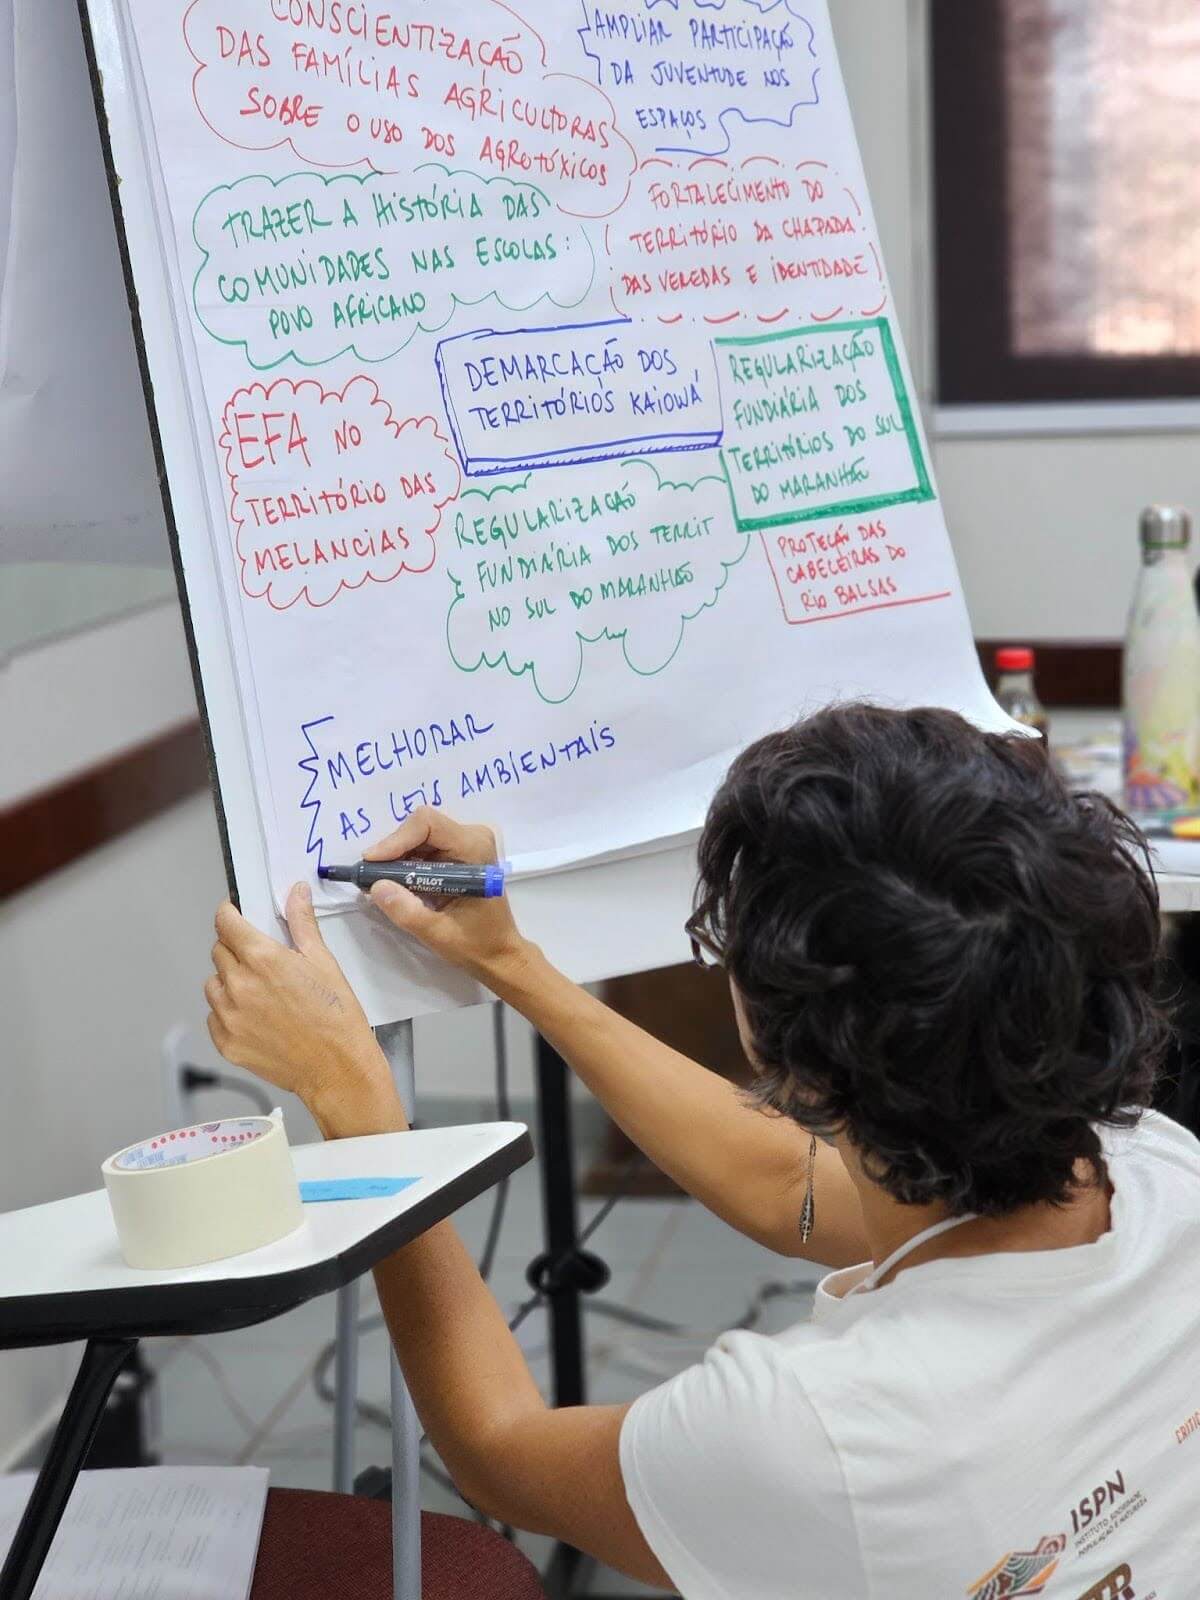 CONSCIENTIZAÇÃO
DAS FAMÍLIAS AGRICULTORAS
SOBRE O USO DOS AGROTÓXICOS
AMPLIAR PARTICIPAÇÃO
DA JUVENTUDE NOS
ESPAÇOS
TRAZER A HISTÓRIA DAS
COMUNIDADES NAS ESCOLAS:
POVO AFRICANO
FORTALECIMENTO DO
TERRITÓRIO DA CHAPADA
DAS VEREDAS E IDENTIDADE
EFA NO
TERRITÓRIO DAS
MELANCIAS
DEMARCAÇÃO DOS
TERRITÓRIOS KAIOWÁ
REGULARIZAÇÃO
FUNDIÁRIA DOS
TERRITÓRIOS DO SUL
DO MARANHÃO
REGULARIZAÇÃO
FUNDIÁRIA DOS TERRIT
NO SUL DO MARANHÃO
PROTEÇÃO DAS
CABECEIRAS DO
RIO BALSAS
MELHORAR
AS LEIS AMBIENTAIS
PILOT
ATÔMICO 1100-P
ISPN
INSTITUTO SOCIEDADE,
POPULAÇÃO E NATUREZA